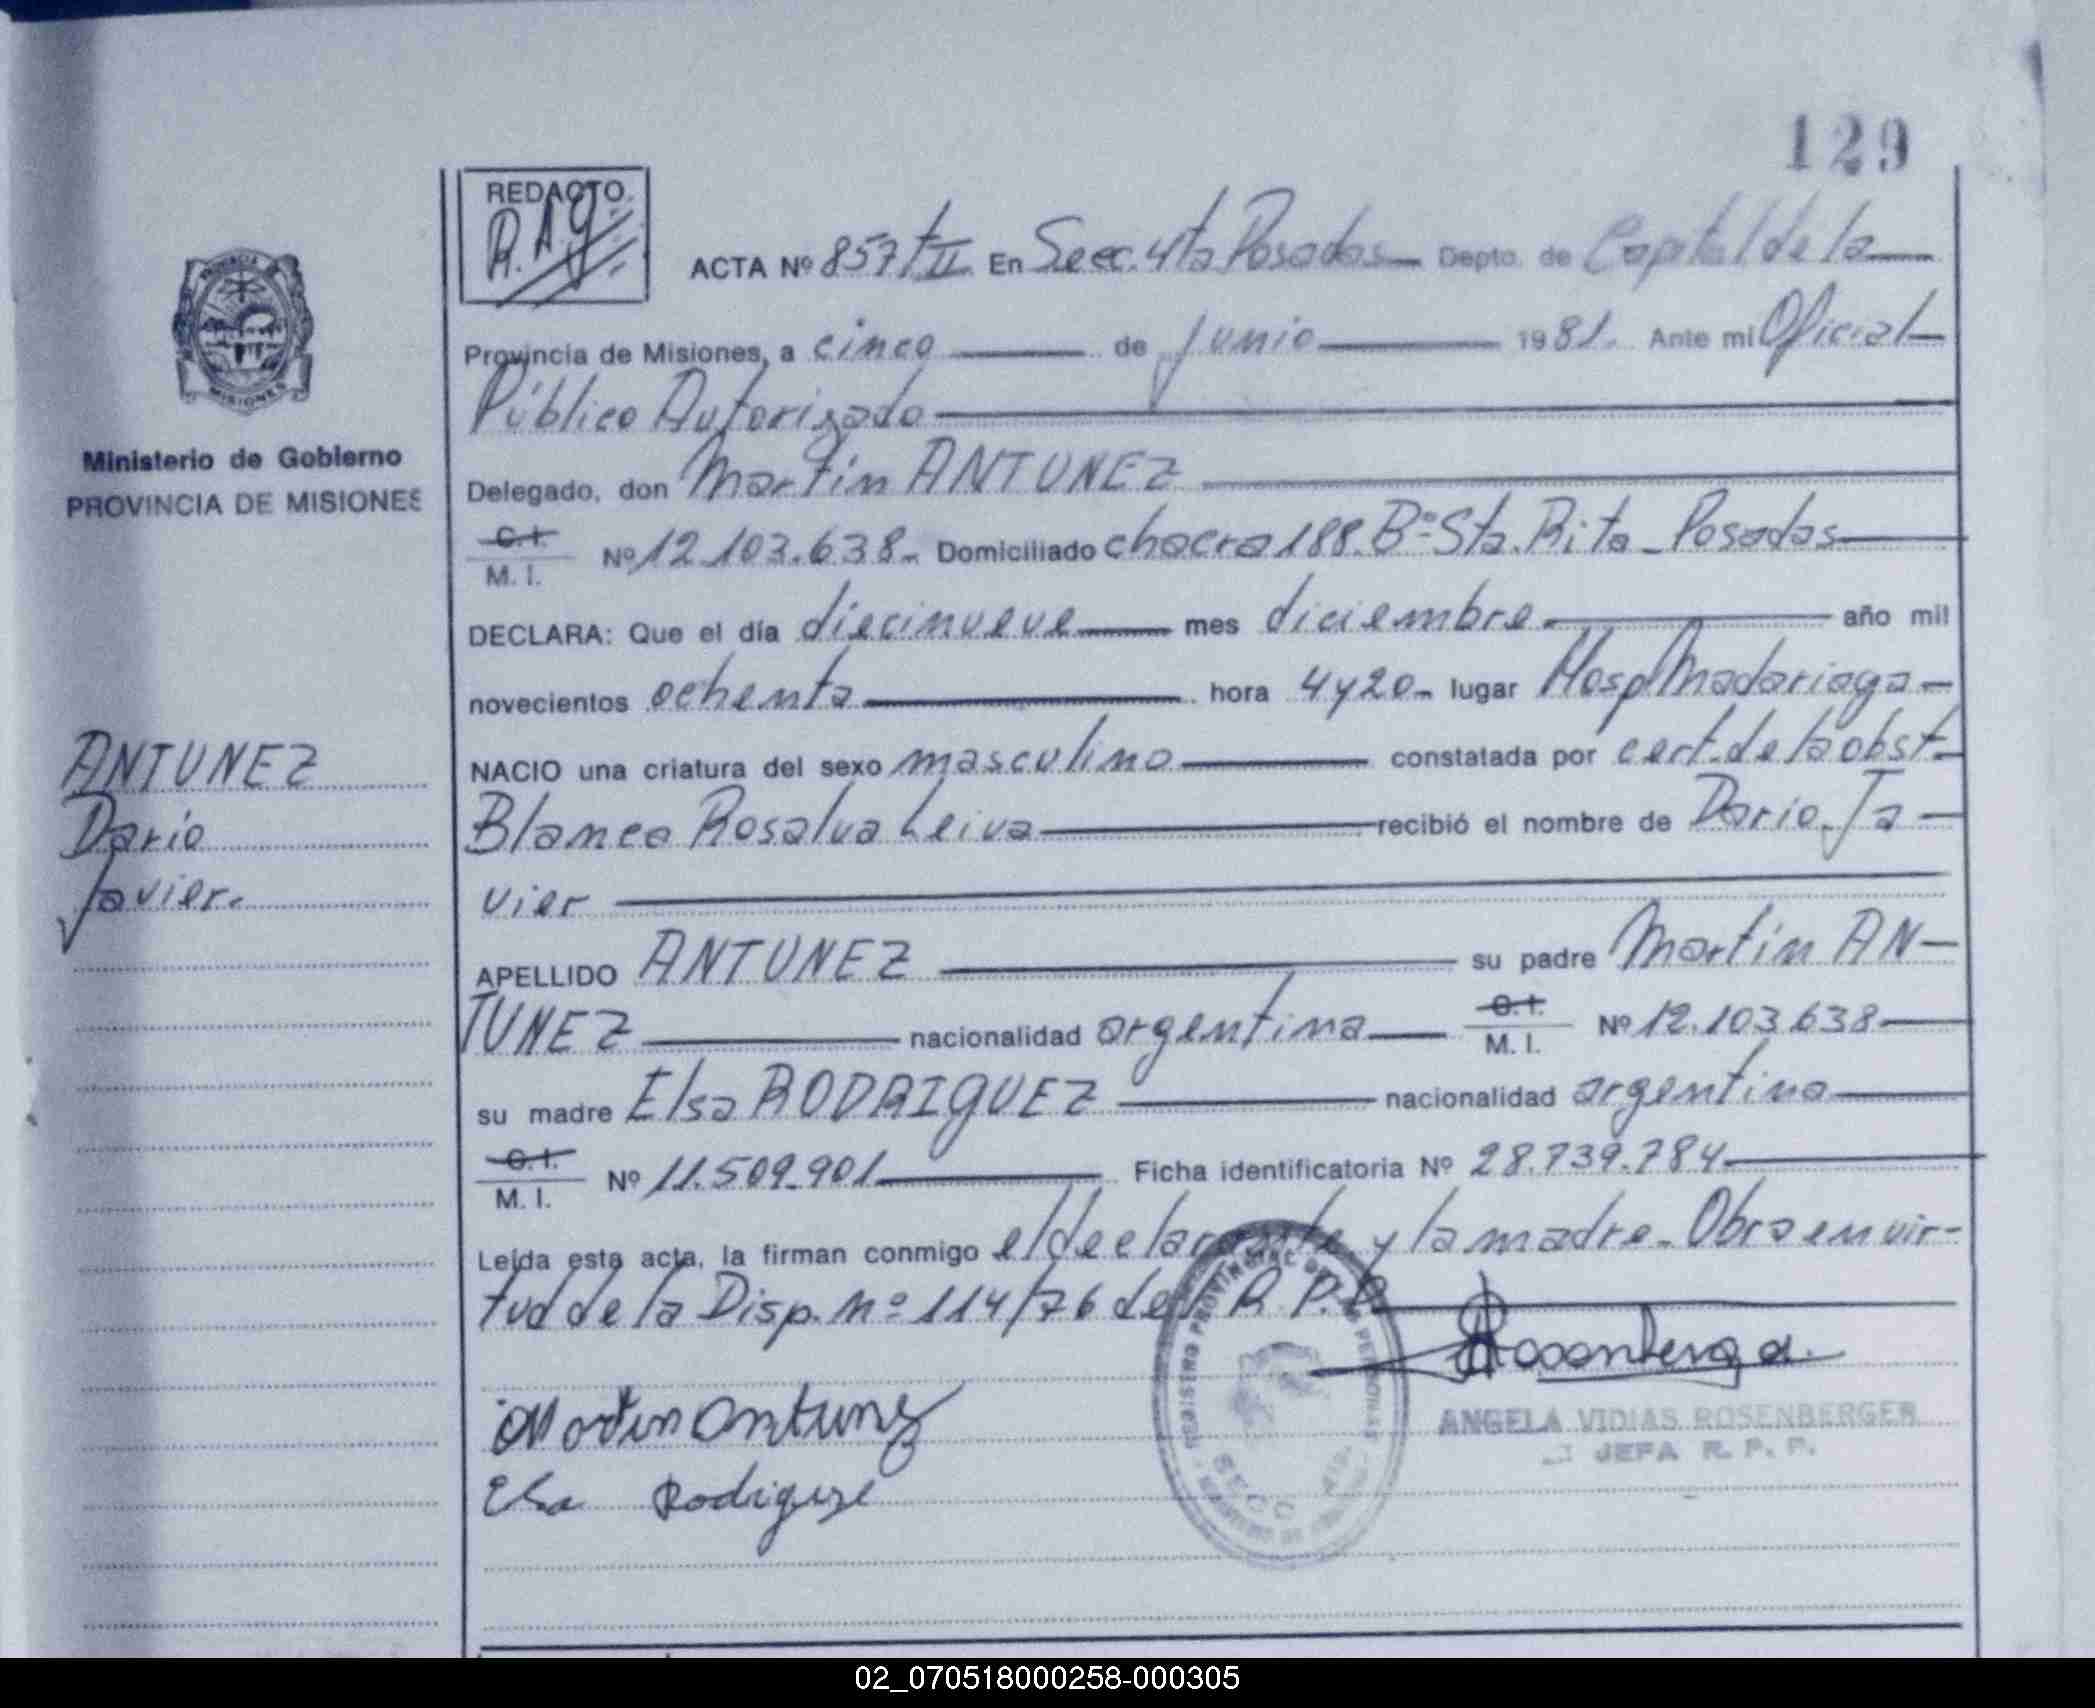 129
REDACTO.
R.A.g.
ACTA Nº 857 tII En Secc. 4ta Posadas Depto. de Capital de la
Provincia de Misiones, a cinco de junio 1981. Ante mi Oficial
Público Autorizado
Delegado, don Martín ANTUNEZ
C.I.
M. I. Nº 12.103.638. Domiciliado chacra 188. Bº Sta. Rita - Posadas
DECLARA: Que el día diecinueve mes diciembre. año mil
novecientos ochenta hora 4y20- lugar Hosp Madariaga
NACIO una criatura del sexo masculino constatada por cert. de la obst.
Blanca Rosalva Leiva recibió el nombre de Dario Ja
vier
APELLIDO ANTUNEZ su padre Martín AN-
TUNEZ nacionalidad argentina C.I.
M. I. Nº 12.103.638
su madre Elsa RODRIGUEZ nacionalidad argentina
C.I.
M. I. Nº 11.509.901 Ficha identificatoria Nº 28.739.784
Leída esta acta, la firman conmigo el declarante y la madre. Obra en vir-
tud de la Disp. Nº 114/76 del R.P.P.
Martin Antunez
Elsa Rodriguez
Rosenberger
ANGELA VIDIAS ROSENBERGER
JEFA R. P. P.
REGISTRO PROVINCIAL DE LAS PERSONAS
SECC. 4ta.
PROVINCIA DE
MISIONES
Ministerio de Gobierno
PROVINCIA DE MISIONES
ANTUNEZ
Dario
Javier.
02_070518000258-000305